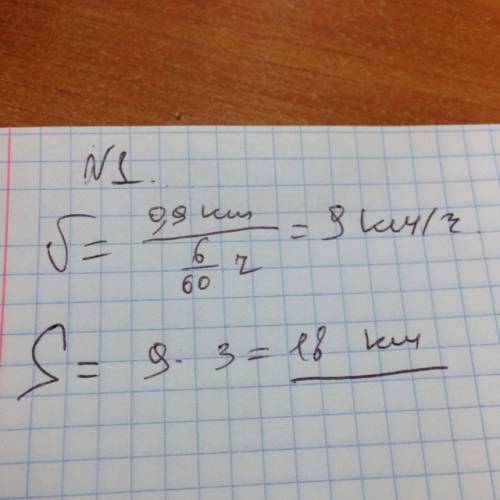 N1.
V = 0,9 км / 6/60 ч = 9 км/ч.
S = 9 · 3 = 18 км